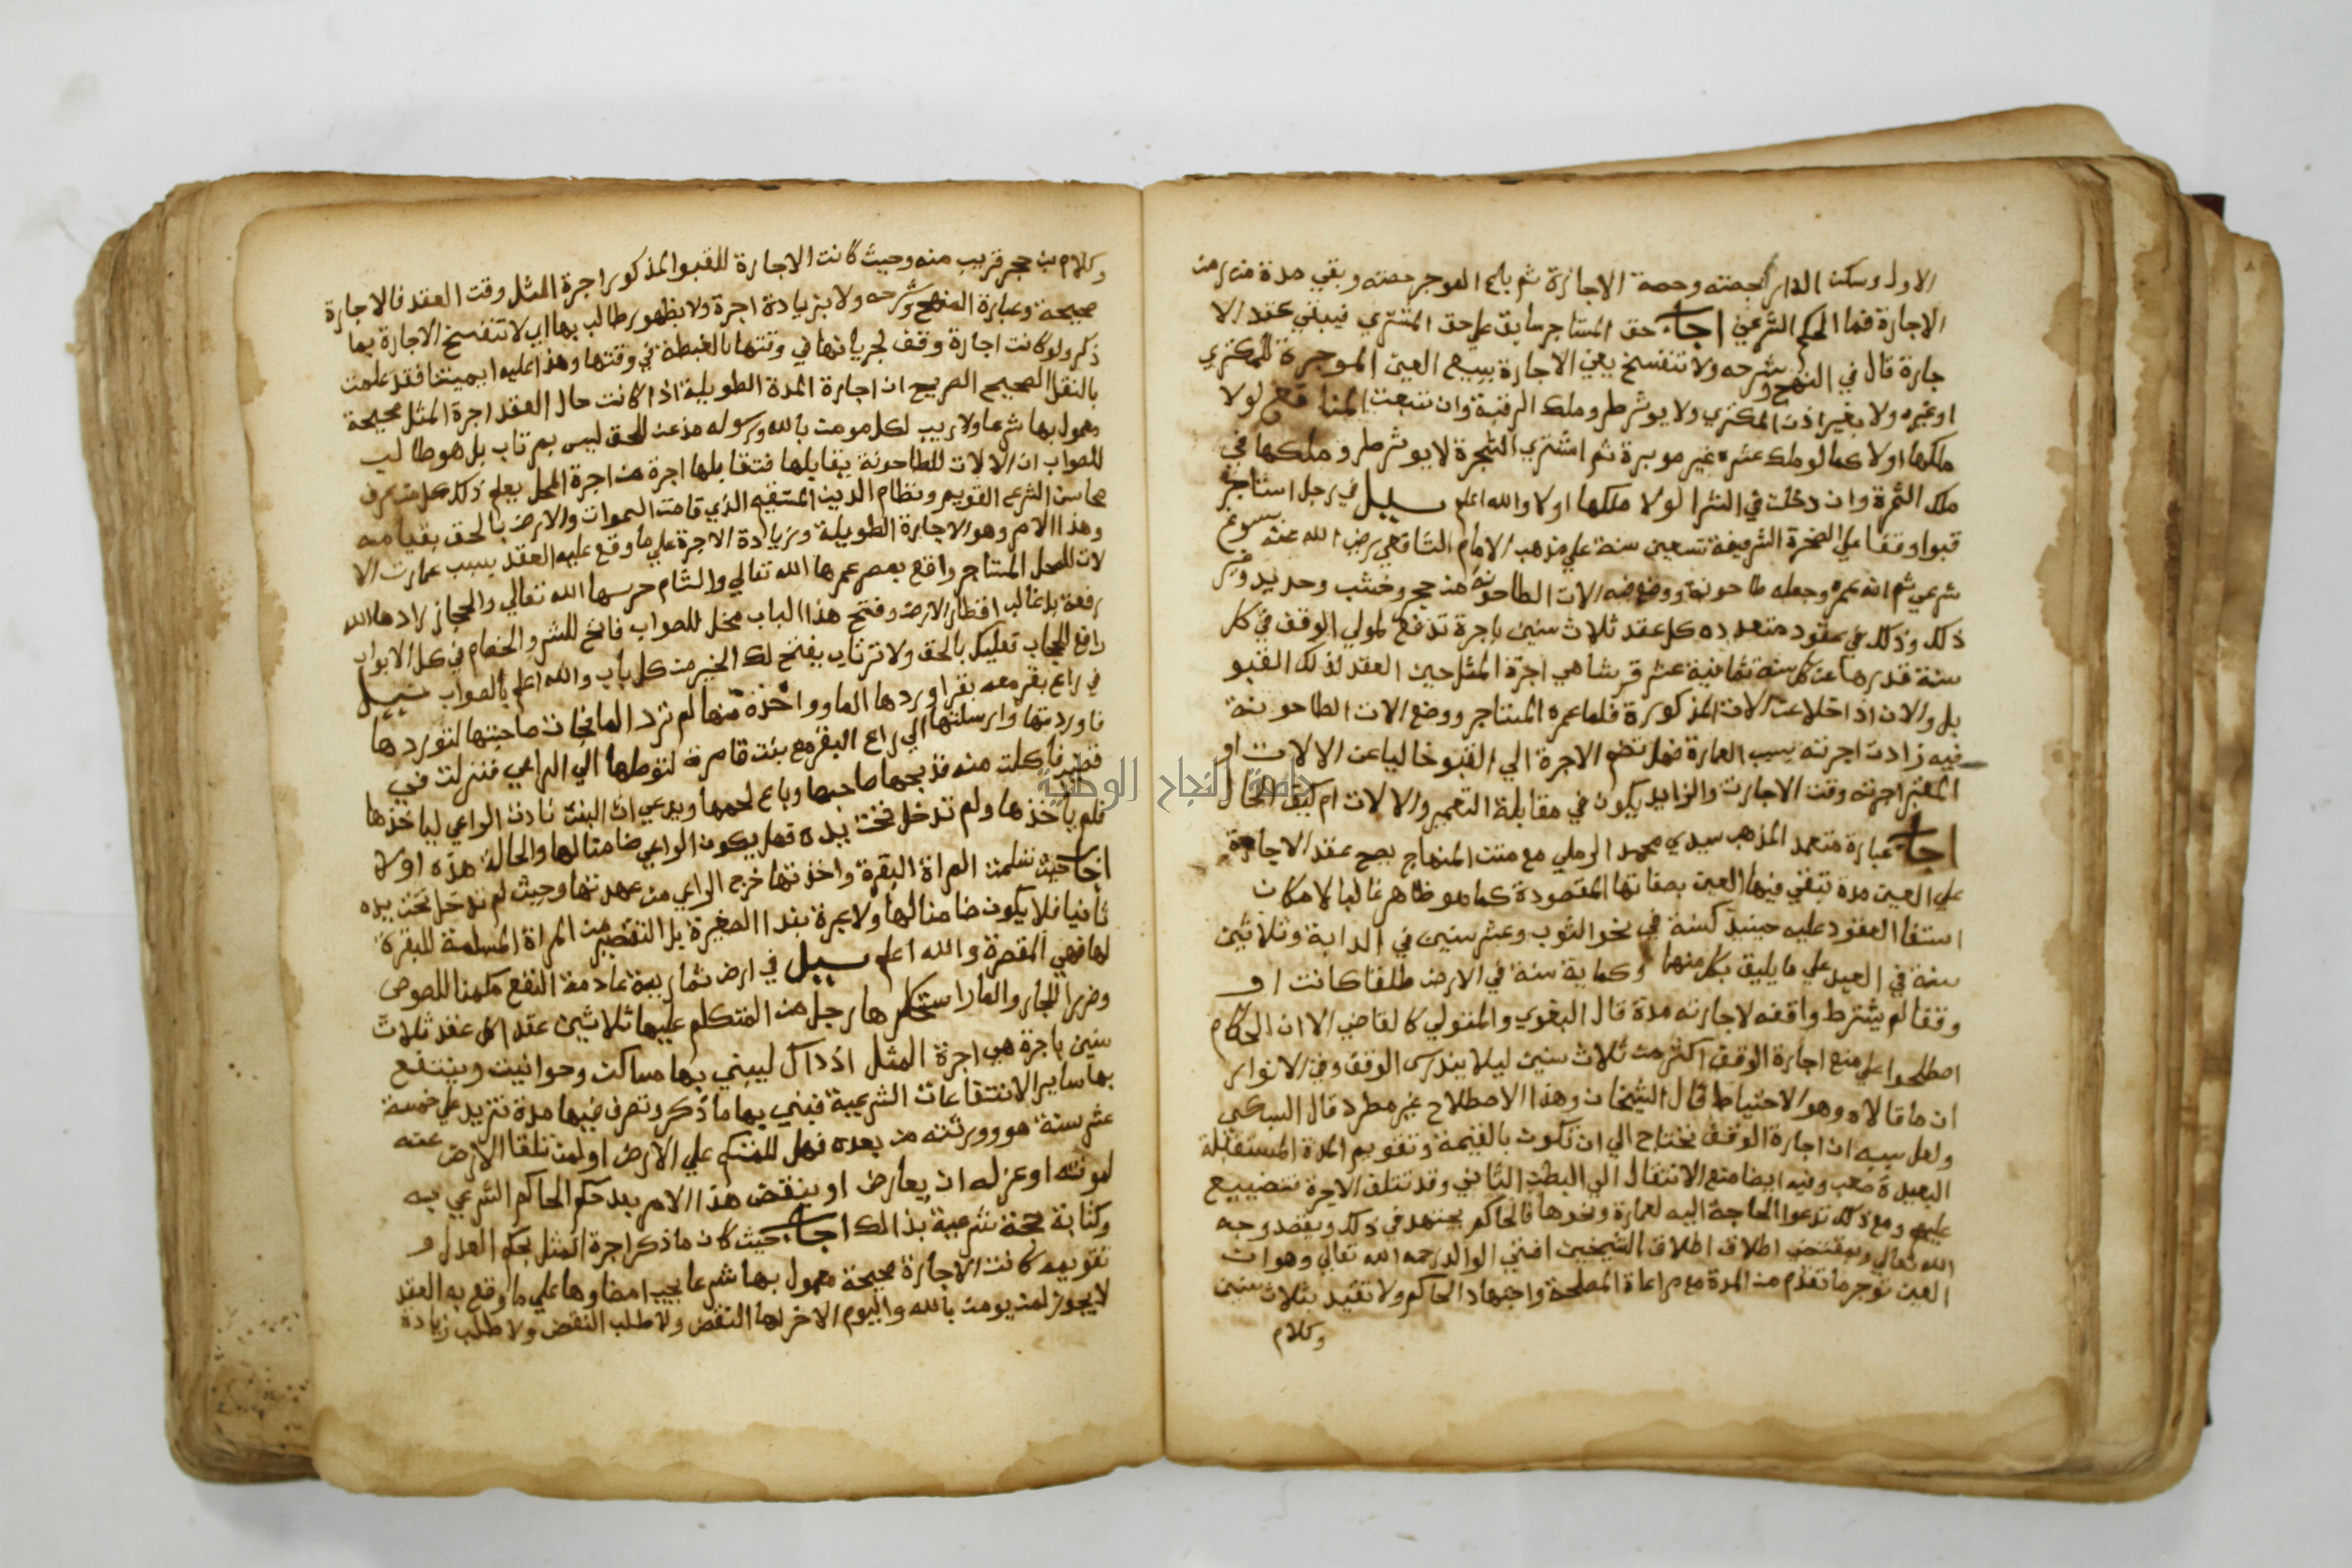 الاول وسكن الدار بحصته وحصة الاجارة ثم باع الموجر حصته وبقي مدة من زمن
الاجارة فما الحكم الشرعي اجاب حق المستاجر سابق علي حق المشتري فيبقي عقد الا
جارة قال في المنهج وشرحه ولا تنفسخ يعني الاجارة ببيع العين الموجرة للمكتري
او غيره ولا بغير اذن المكتري ولا يوثر طرو ملك الرقبة وان تبعت المنافع لولا
ملكها اولا كما لو ملك ثمره غير موبرة ثم اشتري الشجرة لا يوثر طرو ملكها في
ملك الثمرة وان دخلت في الشرا لولا ملكها اولا والله اعلم سيل في رجل استاجر
قبوا وقفا علي الصخرة الشريفة تسعين سنة علي مذهب الامام الشافعي رضي الله عنه بمسوغ
شرعي ثم انه عمره وجعله طاحونة ووضع فيه الات الطاحونة من حجر وخشب وحديد وغير
ذلك وذلك في عقود متعدده كل عقد ثلاث سنين باجرة تدفع لمولي الوقف في كل
سنة قدرها عن كل سنة ثمانية عشر قرشا هي اجرة المثل حين العقد لذلك القبو
بل والان اذا خلا عن الالات المذكورة فلما عمره المستاجر ووضع الات الطاحونة
فيه زادت اجرته بسبب العمارة فهل تضم الاجرة الي القبو خاليا عن الالات او
المعتبر اجرته وقت الاجارة والزايد يكون في مقابلة التعمير والالات ام كيف الحال
اجاب عبارة معتمد المذهب سيدي محمد الرملي مع متن المنهاج يصح عقد الاجارة
علي العين مدة تبقي فيها العين بصفاتها المقصودة كما هو ظاهر غالبا لامكان
استفا المعقود عليه حينيذ كسنة في نحو الثوب وعشر سنين في الدابة وثلاثين
سنة في العبد علي ما يليق بكل منهما وكماية سنة في الارض طلقا كانت او
وقفا لم يشترط واقفه لاجارته مدة قال البغوي والمتولي كالقاضي الا ان الحكام
اصطلحوا علي منع اجارة الوقف اكثر من ثلاث سنين ليلا يندرس الوقف وفي الانوار
ان ما قالاه هو الاحتياط قال الشيخان وهذا الاصطلاح غير مطرد قال السبكي
ولعل سببه ان اجارة الوقف تحتاج الي ان تكون بالقيمة وتقويم المدة المستقبلة
البعيدة صعب وفيه ايضا منع الانتقال الي البطن الثاني وقد تتلف الاجرة فتضييع
عليهم ومع ذلك تدعوا الحاجة اليه لعمارة ونحوها فالحاكم يجتهد في ذلك ويقصد وجه
الله تعالي وبمقتضي اطلاق اطلاق الشيخين افتي الوالد رحمه الله تعالي وهو ان
العين توجر ما تقدم من المدة مع مراعاة المصلحة واجتهاد الحاكم ولا تقيد بثلاث سنين
وكلام
وكلام بن حجر قريب منه وحيث كانت الاجارة للقبو المذكور اجرة المثل وقت العقد فالاجارة
صحيحة وعبارة المنهج وشرحه ولا بزيادة اجرة ولا بظهور طالب بها اي لا تنفسخ الاجارة بما
ذكر ولو كانت اجارة وقف لجريانها في وقتها بالغبطة في وقتها وهذا عليه ايمتنا فقد علمت
بالنقل الصحيح الصريح ان اجارة المدة الطويلة اذا كانت حال العقد اجرة المثل صحيحة
معمول بها شرعا ولا ريب لكل مومن بالله ورسوله مذعن للحق ليس بمرتاب بل هو طالب
للصواب ان الالات للطاحونة يقابلها فتقابلها اجرة من اجرة المحل يعلم ذلك كل من عرف
محاسن الشرع القويم ونظام الدين المستقيم الذي قامت السموات والارض بالحق بقيامه
وهذا الامر وهو الاجارة الطويلة وزيادة الاجرة علي ما وقع عليه العقد بسبب عمارت الا
لات للمحل المستاجر واقع بمصر عمرها الله تعالي والشام حرسها الله تعالي والحجاز زادها الله
رفعة بل غالب اقطار الارض وفتح هذا الباب مخل للصواب فاتح للشر والخصام في كل الابواب
رافع للحجاب تعليك بالحق ولا ترتاب يفتح لك الخير من كل باب والله اعلم بالصواب سيل
في راع بقر معه بقر اوردها الما وواخذة منها لم ترد الما فجات صاحبتها لتوردها
فاوردتها وارسلتها الي راع البقر مع بنت قاصرة لتوصلها الي الراعي فنزلت في
فطير فاكلت منه فذبحها صاحبها وباع لحمها ويدعي ان البنت نادت الراعي لياخذها
فلم ياخذها ولم تدخل تحت يده فهل يكون الراعي ضامنا لها والحالة هذه او لا
اجاب حيث تسلمت المراة البقرة واخذتها خرج الراعي من عهدتها وحيث لم تدخل تحت يده
ثانيا فلا يكون ضامنا لها ولا عبرة بندا الصغيرة بل التقصير من المراة المسلمة للبقرة
لها فهي المقصرة والله اعلم سيل في ارض شمار بمة عادمة النفع مكمنا للصوص
وضررا للجار والمار استحكرها رجل من المتكلم عليها ثلاثين عقدا كل عقد ثلاث
سنين باجرة هي اجرة المثل اذ ذاك ليبني بها مساكن وحوانيت وينتفع
بها ساير الانتفاعات الشرعية فبني بها ما ذكر وتصرف فيها مدة تزيد علي خمسة
عشر سنة هو وورثته من بعده فهل للمتكلم علي الارض او لمن تلقا الارض عنه
لموته او عزله ان يعارض او ينقض هذا الامر بعد حكم الحاكم الشرعي به
وكتابة حجة شرعية بذالك اجاب حيث كان ما ذكر اجرة المثل بحكم العدل و
تقويمه كانت الاجارة صحيحة معمول بها شرعا يجب امضاوها علي ما وقع به العقد
لا يجوز لمن يومن بالله واليوم الاخر لها النقض ولا طلب النقض ولا طلب زيادة
جامعة النجاح الوطنية